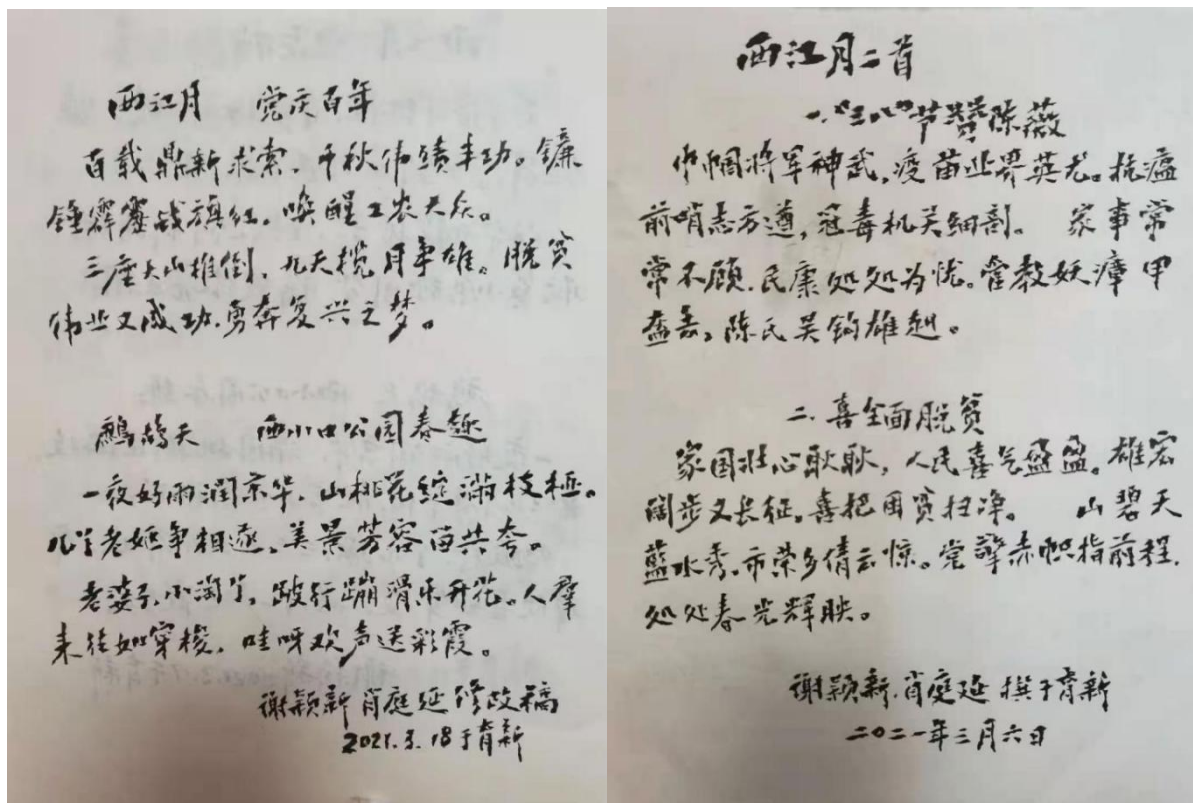 西江月 党庆百年
百载鼎新求索,千秋伟绩丰功。镰
锤霹雳战旗红,唤醒工农大众。
三座大山推倒,九天揽月争雄。脱贫
伟业又成功,勇奔复兴之梦。
鹧鸪天 西小口公园春趣
一夜好雨润京华,山桃花绽满枝桠。
儿学老妪争相逐,美景芳容共夸。
老婆子,小淘丫,跛行蹦滑乐开花。人群
来往如穿梭,哇呀欢声送彩霞。
谢颖新 肖庭延 修改稿
2021.3.18于育新
西江月二首
一.“三八”节赞陈薇
巾帼将军神武,疫苗业界英尤。抗瘟
前哨志方遒,冠毒机关细剖。 家事常
常不顾,民康处处为忧。管教妖瘴甲
盔丢,陈氏吴钩雄赳。
二.喜全面脱贫
家国壮心耿耿,人民喜气盛盈。雄宏
阔步又长征,喜把困贫扫净。 山碧天
蓝水秀,市荣乡倩云惊。党擎赤帜指前程,
处处春光辉映。
谢颖新.肖庭延 撰于育新
二〇二一年三月六日